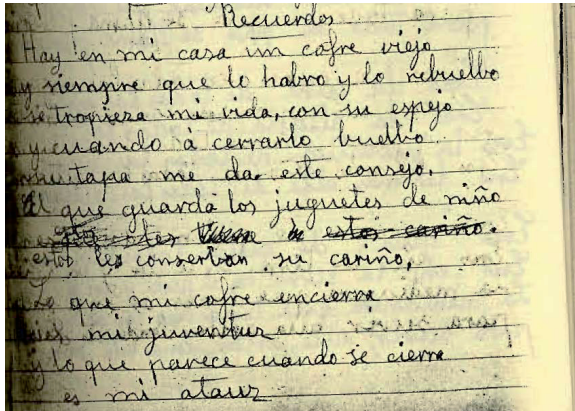 Recuerdos
Hay en mi casa un cofre viejo
y siempre que lo habro y lo rebuelbo
se tropieza mi vida, con su espejo
y cuando á cerrarlo buelbo
su tapa me da este consejo.
Al que guarda los juguetes de niño
estos cariño.
estos les conserban su cariño,
Lo que mi cofre encierra
es mi juventuz
y lo que parece cuando se cierra
es mi atauz